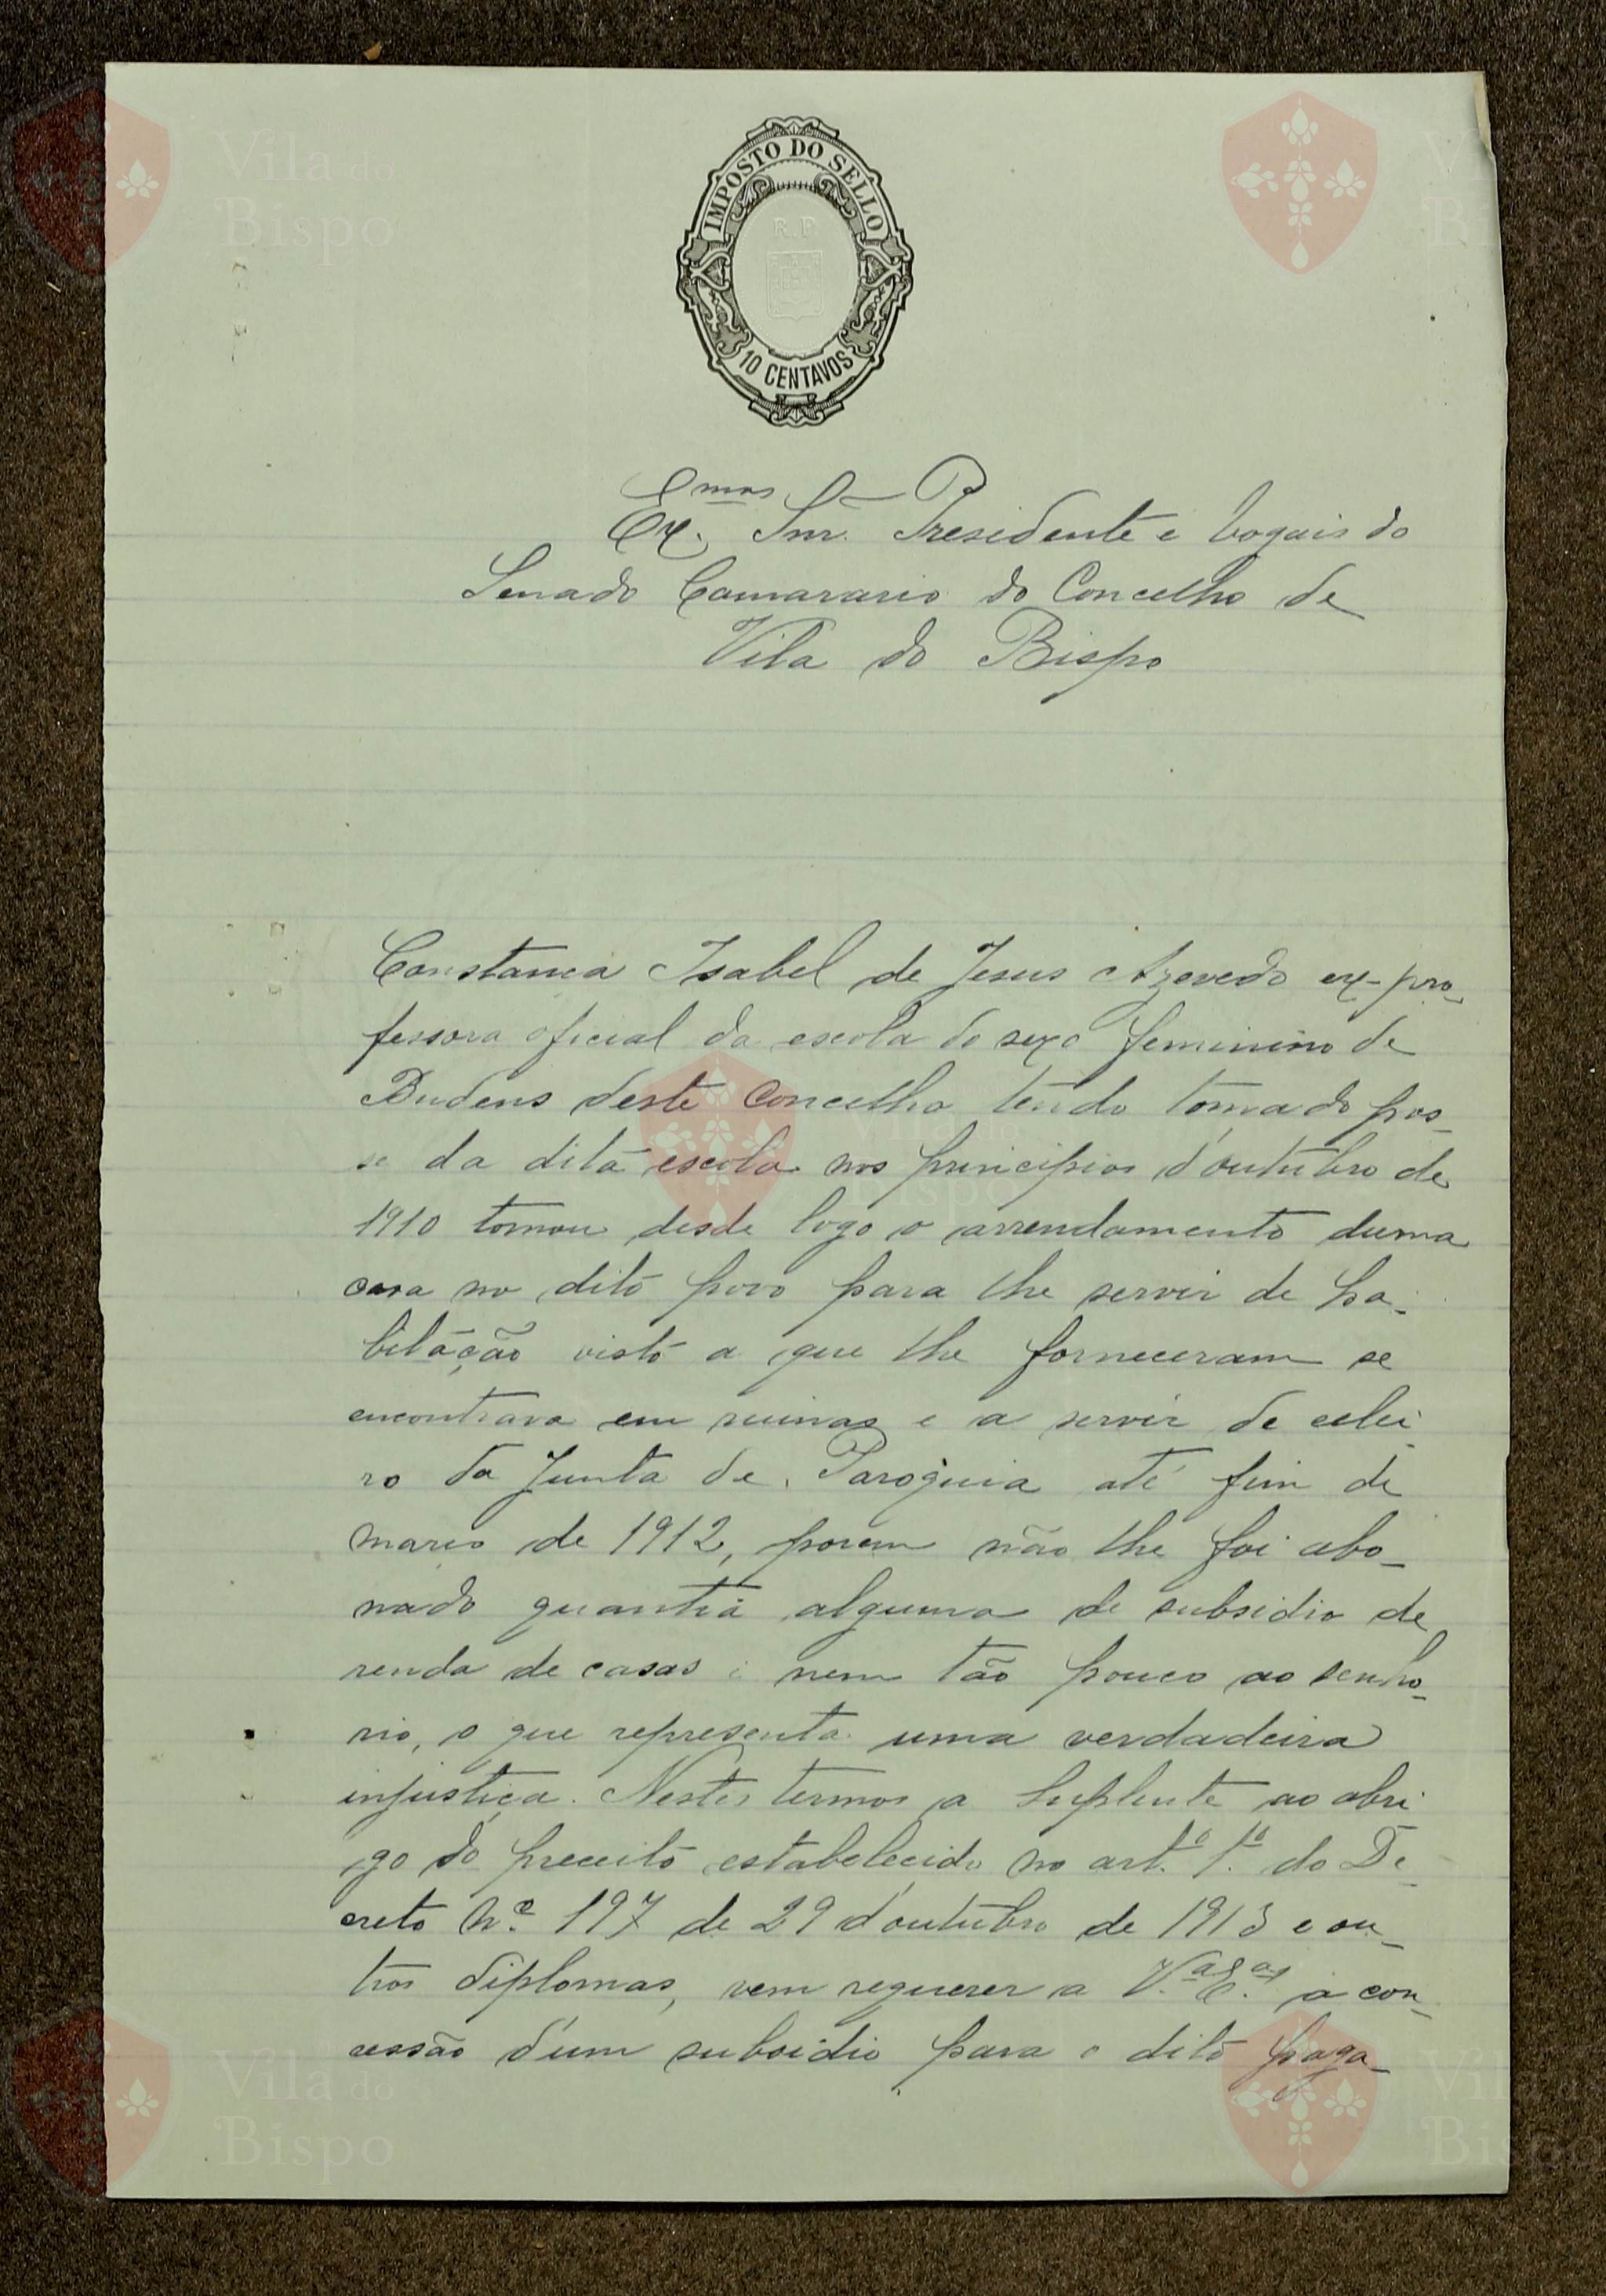 IMPOSTO DO SELLO
R.P.
10 CENTAVOS
Ex.mos Snr. Presidente e Vogais do
Senado Camarario do Concelho de
Vila do Bispo
Constança Isabel de Jesus Azevedo ex-pro-
fessora oficial da escola do sexo feminino de
Budens deste Concelho tendo tomado pos-
se da dita escola nos principios d'outubro de
1910 tomou desde logo o arrendamento duma
casa no dito povo para lhe servir de ha-
bitação visto a que lhe forneceram se
encontrava em ruinas e a servir de celei
ro da Junta de Paroquia até fim de
março de 1912, porem não lhe foi abo-
nado quantia alguma de subsidio de
renda de casas e nem tão pouco ao senho-
rio, o que representa uma verdadeira
injustiça. Nestes termos a Suplente ao abri
go do preceito estabelecido no art.º 1.º do De-
creto N.º 197 de 29 d'outubro de 1913 e ou-
tros diplomas, vem requerer a V.as E.as a con-
cessão d'um subsidio para o dito paga-
Vila do
Bispo
Vila do
Bispo
Vila do
Bispo